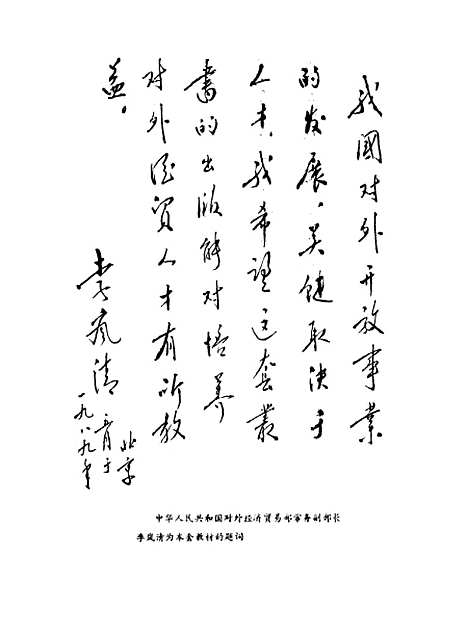 我國对外开放事業
的发展，关键取决于
人才。我希望这套叢
書的出版能对培养
对外经贸人才有所教
益。
李岚清
一九八九年
月于
北京
中华人民共和国对外经济贸易部常务副部长
李岚清为本套教材的题词